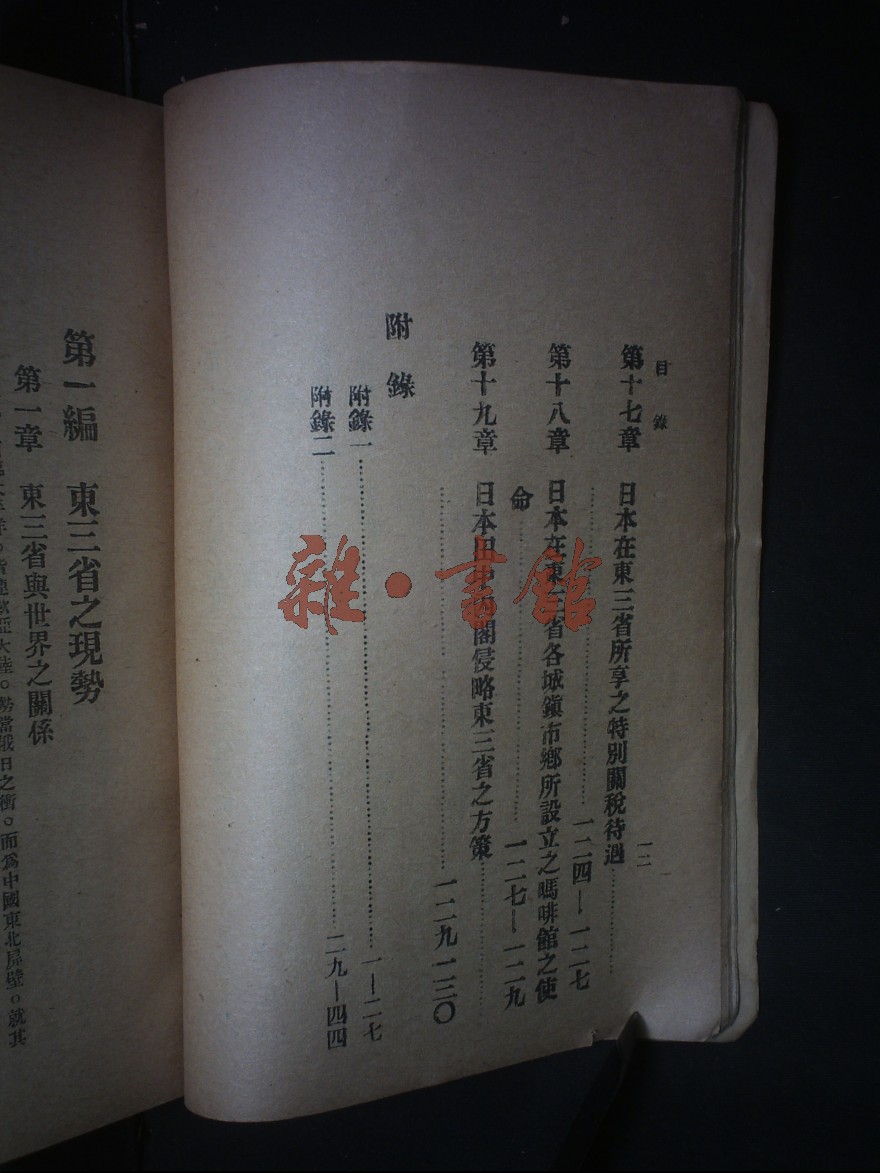 目錄
一二
第十七章 日本在東三省所享之特別關稅待遇……
……一二四—一二七
第十八章 日本在東三省各城鎭市鄕所設立之嗎啡館之使
命……一二七—一二九
第十九章 日本田中內閣侵略東三省之方策……
……一二九 一三〇
附錄
附錄一……一—二七
附錄二……二九—四四
雜·書館
第一編 東三省之現勢
第一章 東三省與世界之關係
歐亞大陸。勢當俄日之衝。而爲中國東北屛壁。就其